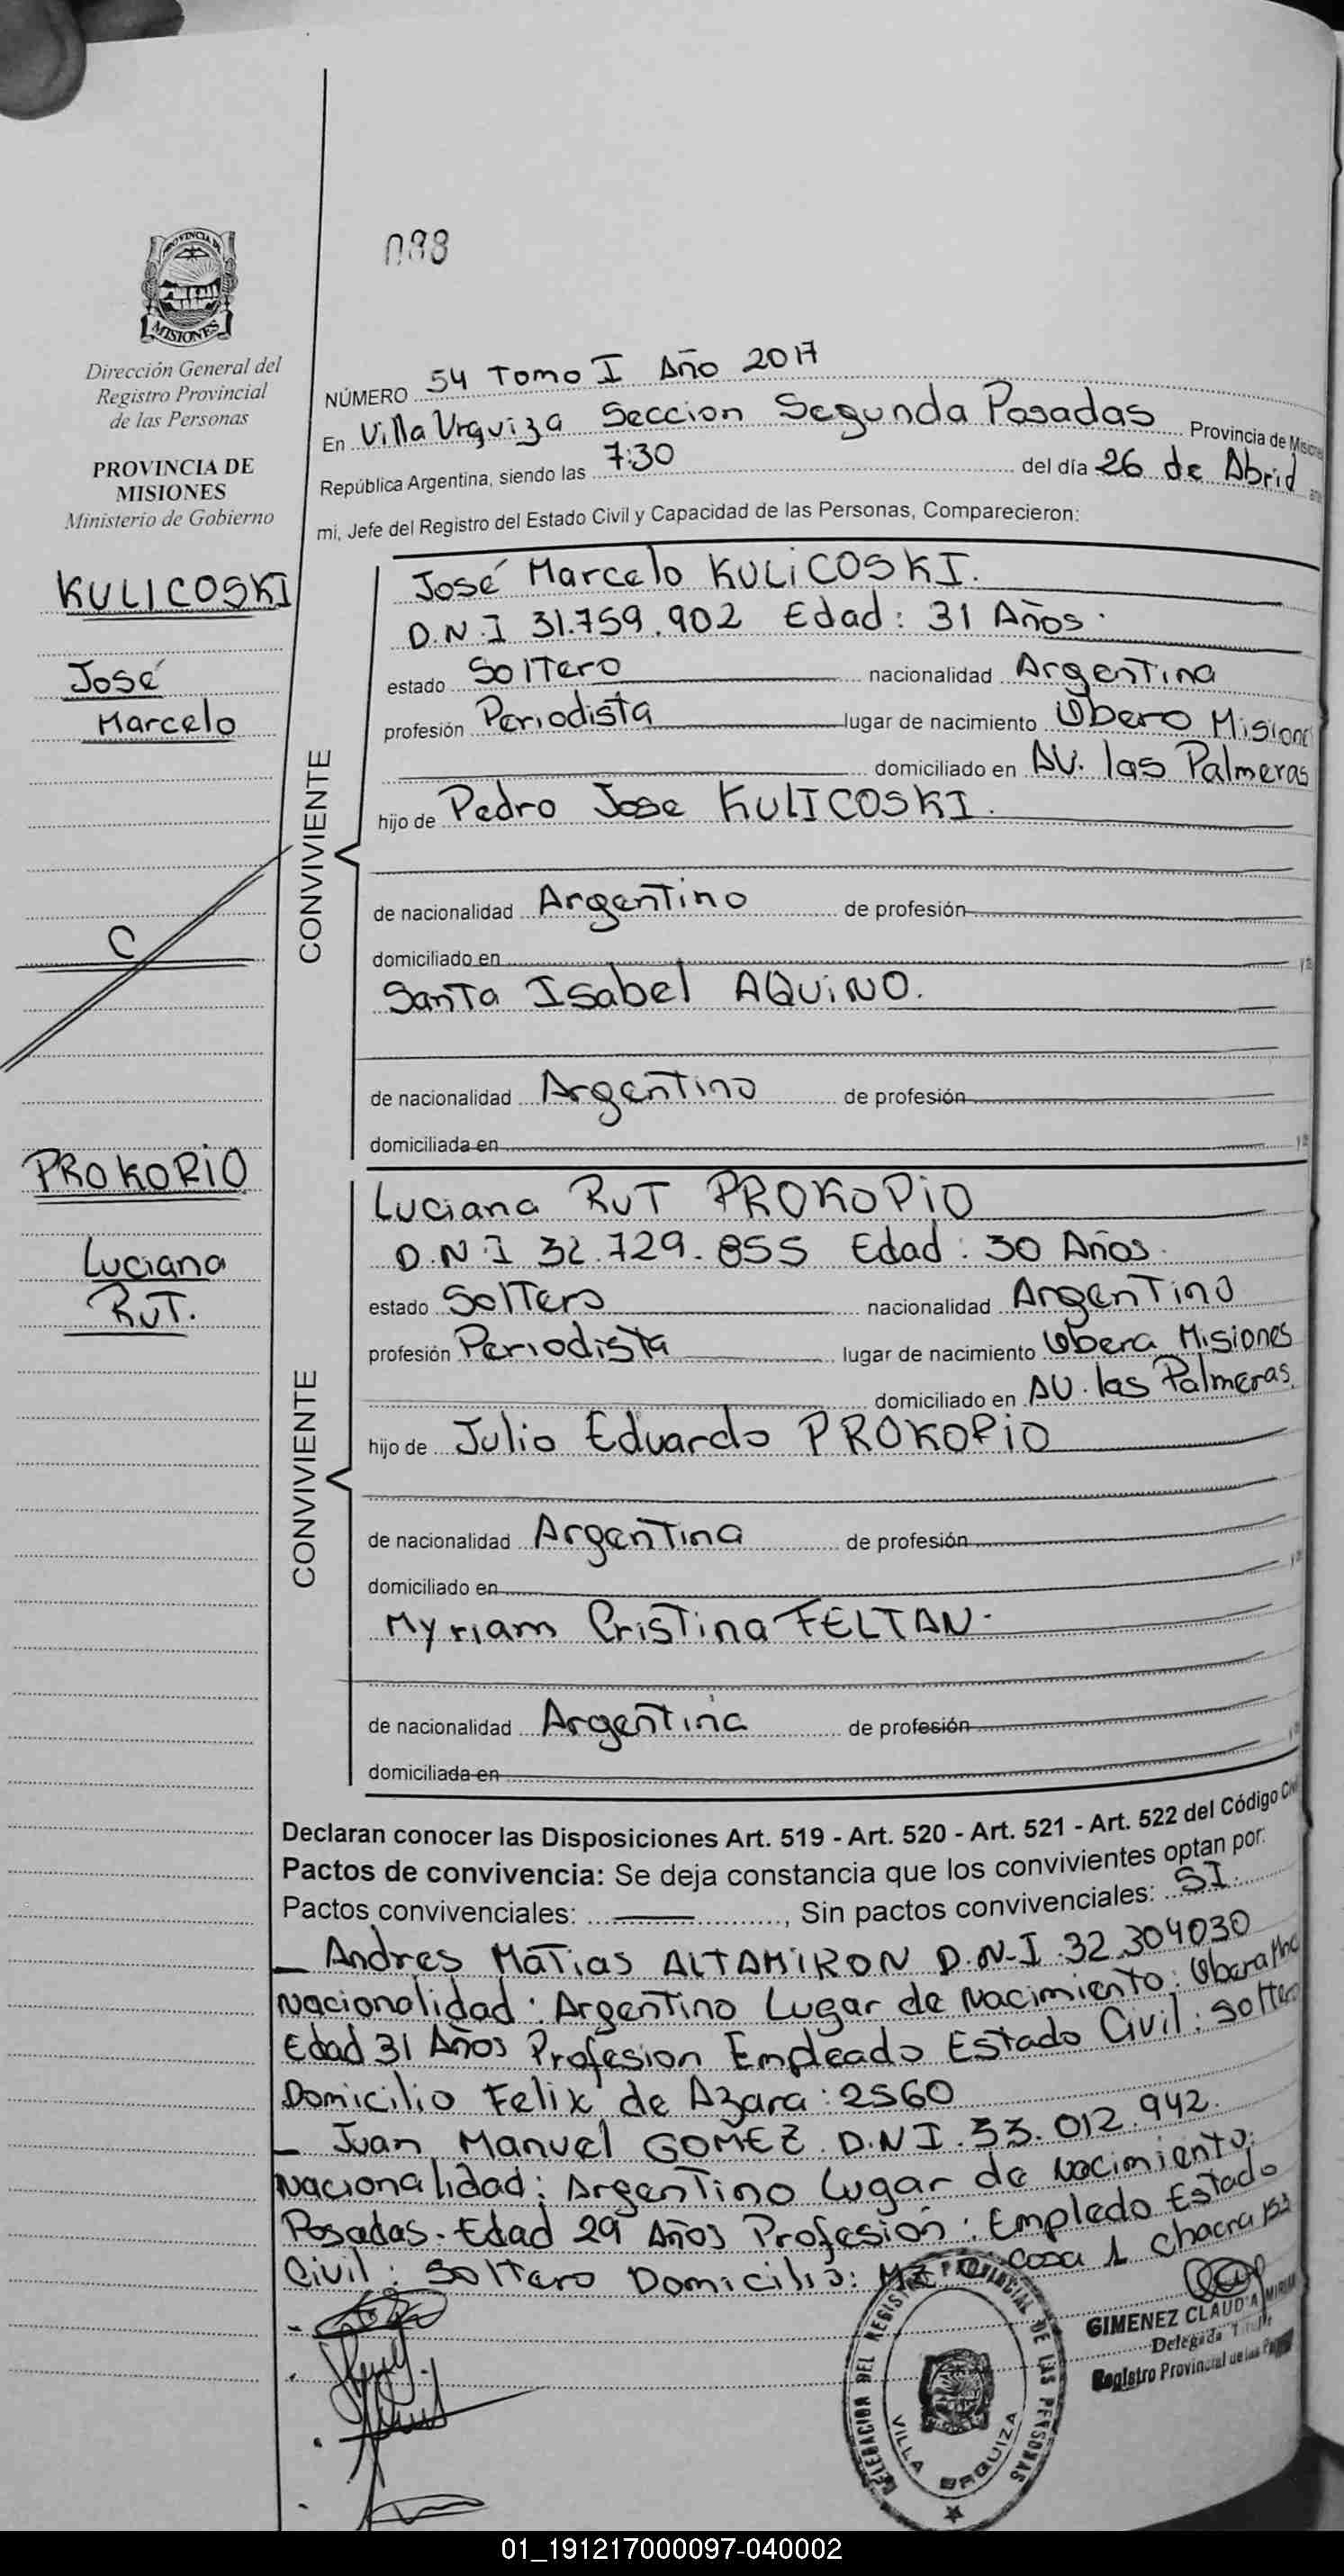 098
PROVINCIA DE
MISIONES
Dirección General del
Registro Provincial
de las Personas
PROVINCIA DE
MISIONES
Ministerio de Gobierno
KULICOSKI
José
Marcelo
C
PROKOPIO
Luciana
RuT.
NÚMERO 54 Tomo I Año 2017
En Villa Urquiza Seccion Segunda Posadas Provincia de Misiones
República Argentina, siendo las 7:30 del día 26 de Abril ante
mi, Jefe del Registro del Estado Civil y Capacidad de las Personas, Comparecieron:
CONVIVIENTE
José Marcelo KULICOSKI.
D.N.I 31.759.902 Edad: 31 Años.
estado SolTero nacionalidad ArgenTina
profesión Periodista lugar de nacimiento Obero Misiones
domiciliado en AV. las Palmeras
hijo de Pedro Jose KULICOSKI.
de nacionalidad ArgenTino de profesión
domiciliado en
SanTa Isabel AQUINO.
de nacionalidad ArgenTino de profesión
domiciliada en
CONVIVIENTE
Luciana RuT PROKOPIO
D.N.I 32.729.855 Edad: 30 Años.
estado SolTero nacionalidad ArgenTino
profesión Periodista lugar de nacimiento Obera Misiones
domiciliado en AV. las Palmeras.
hijo de Julio Eduardo PROKOPIO
de nacionalidad ArgenTina de profesión
domiciliado en
Myriam CrisTina FELTAN.
de nacionalidad ArgenTina de profesión
domiciliada en
Declaran conocer las Disposiciones Art. 519 - Art. 520 - Art. 521 - Art. 522 del Código Civil
Pactos de convivencia: Se deja constancia que los convivientes optan por:
Pactos convivenciales: , Sin pactos convivenciales: SI.
- Andres MaTias ALTAMIRON D.N.I.32.304030
Nacionalidad: ArgenTino Lugar de Nacimiento: Obera
Edad 31 Años Profesion Empleado Estado Civil: soltero
Domicilio Felix de Azara: 2560
- Juan Manuel GOMEZ. D.N.I.33.012.942.
Nacionalidad: ArgenTino Lugar de nacimiento:
Posadas. Edad 29 Años Profesión: Empledo Estado
Civil: SolTero Domicilio: MZ Casa 1 Chacra
DEL REGISTRO PROVINCIAL DE LAS PERSONAS
VILLA URQUIZA
GIMENEZ CLAUDIA
Delegada
Registro Provincial de las
01_191217000097-040002